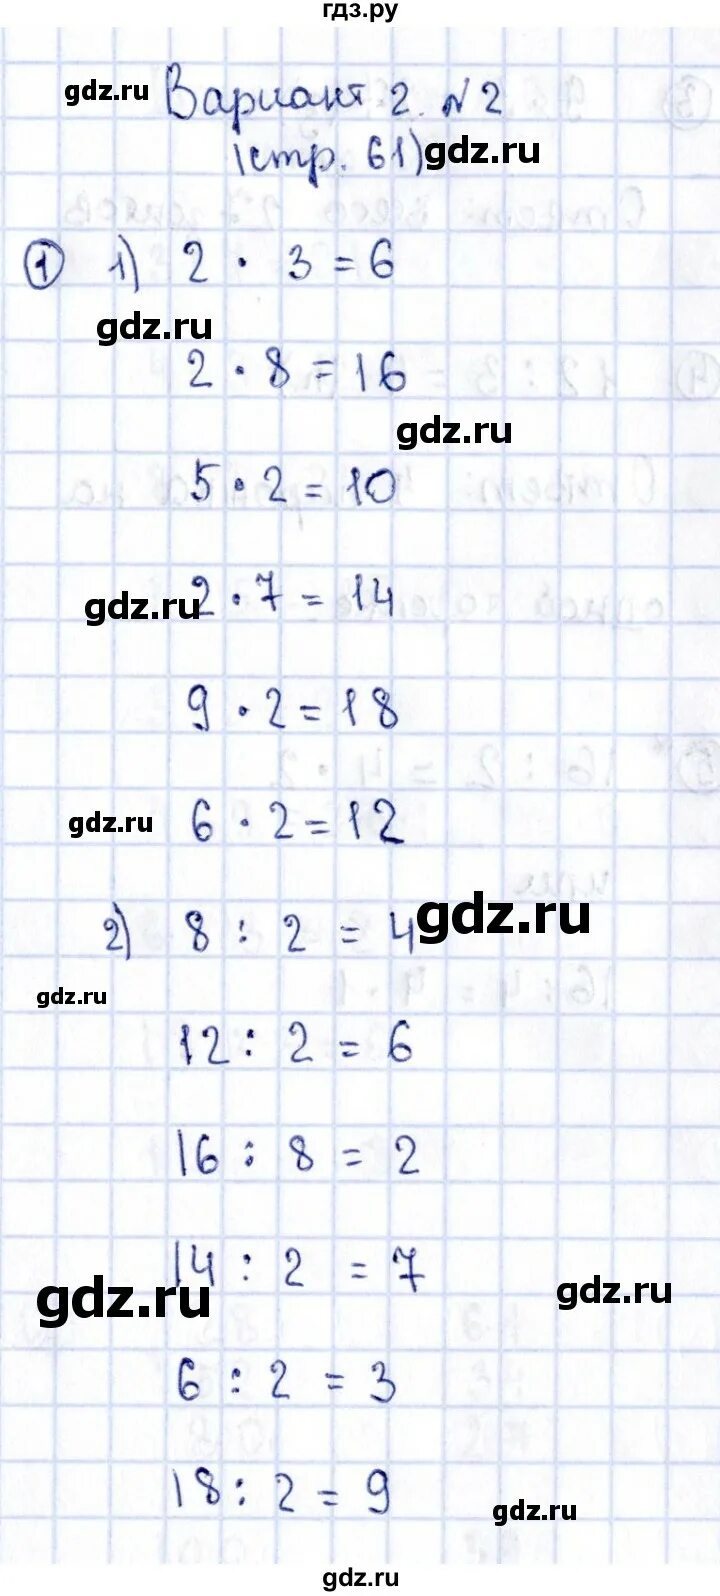 гдз.ру
gdz.ru
Вариант 2. №2
(стр. 61) gdz.ru
1 1) 2 · 3 = 6
gdz.ru
2 · 8 = 16
gdz.ru
5 · 2 = 10
2 · 7 = 14
gdz.ru
9 · 2 = 18
gdz.ru 6 · 2 = 12
2) 8 : 2 = 4 gdz.ru
gdz.ru
12 : 2 = 6
16 : 8 = 2
14 : 2 = 7
gdz.ru gdz.ru
6 : 2 = 3
18 : 2 = 9
gdz.ru
gdz.ru